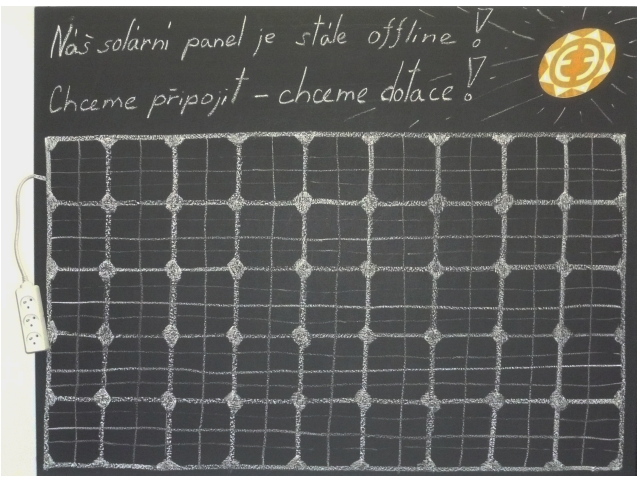 Náš solární panel je stále offline!
Chceme připojit – chceme dotace!